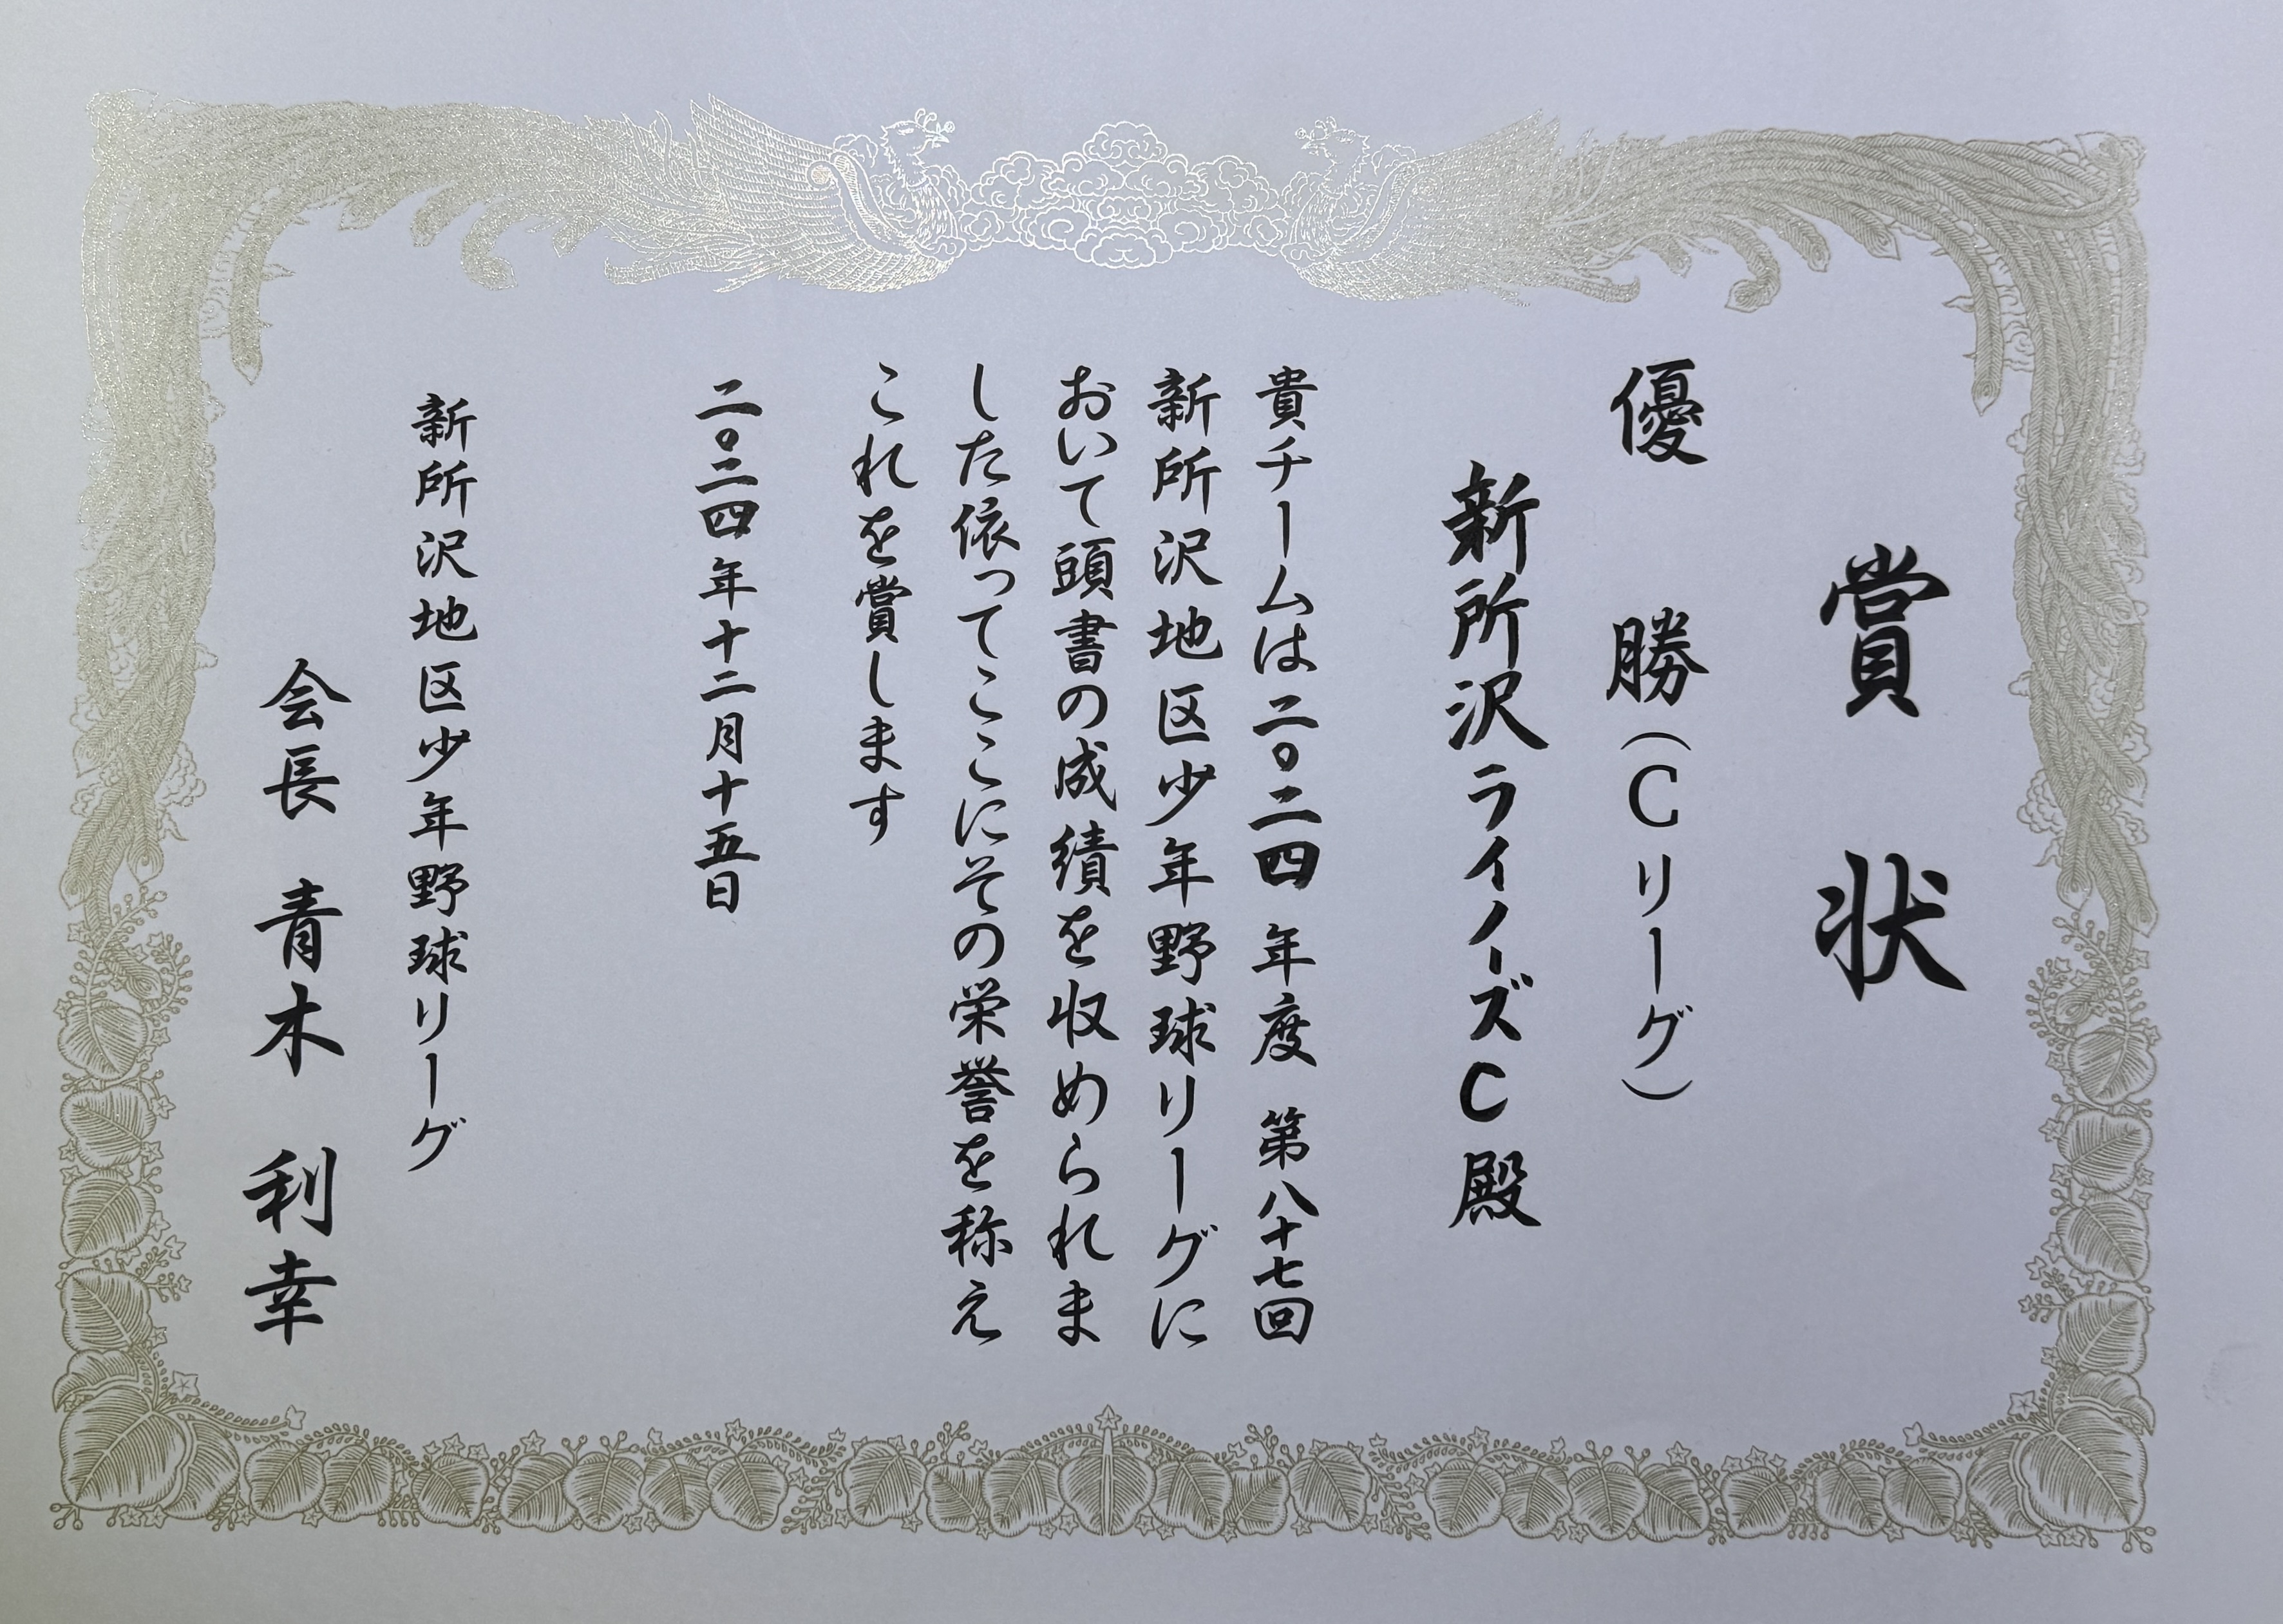 賞状
優勝(Cリーグ)
新所沢ライノーズC殿
貴チームは二〇二四年度 第八十七回
新所沢地区少年野球リーグに
おいて頭書の成績を収められま
した依ってここにその栄誉を称え
これを賞します
二〇二四年十二月十五日
新所沢地区少年野球リーグ
会長 青木 利幸